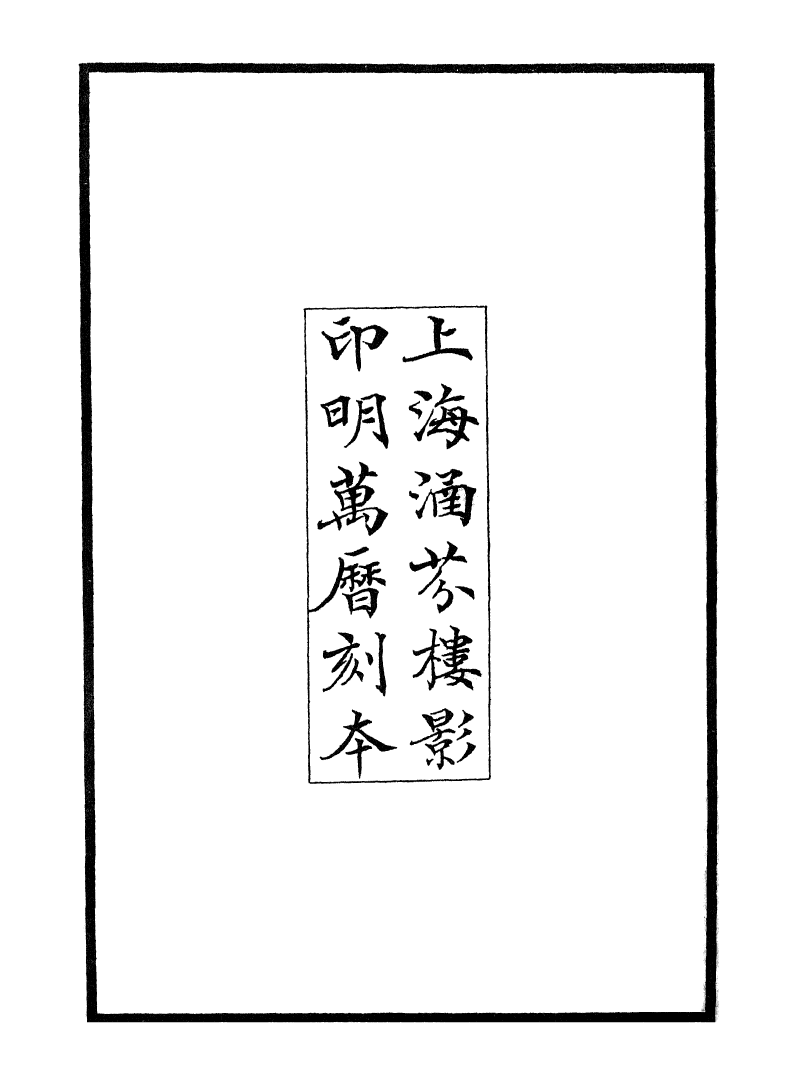 上海涵芬樓影
印明萬曆刻本